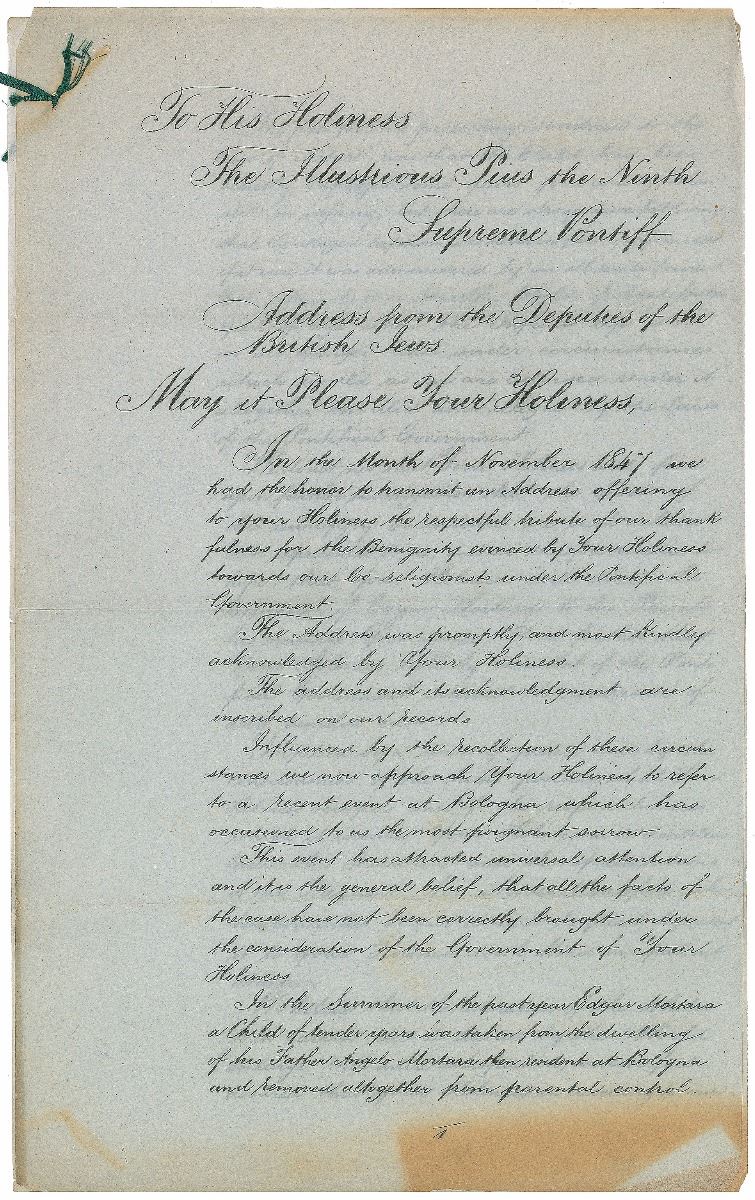 To His Holiness
The Illustrious Pius the Ninth
Supreme Pontiff
Address from the Deputies of the
British Jews
May it Please Your Holiness,
In the Month of November 1847 we
had the honor to transmit an Address offering
to your Holiness the respectful tribute of our thank
fulness for the Benignity evinced by Your Holiness
towards our Co-religionists under the Pontifical
Government.
The Address was promptly and most kindly
acknowledged by Your Holiness.
The address and its acknowledgment are
inscribed on our records
Influenced by the recollection of these circum
stances we now approach Your Holiness, to refer
to a recent event at Bologna which has
occasioned to us the most poignant sorrow.
This event has attracted universal attention
and it is the general belief, that all the facts of
the case have not been correctly brought under
the consideration of the Government of Your
Holiness
In the Summer of the past year Edgar Mortara
a Child of tender years was taken from the dwelling
of his Father Angelo Mortara then resident at Bologna
and removed altogether from parental control